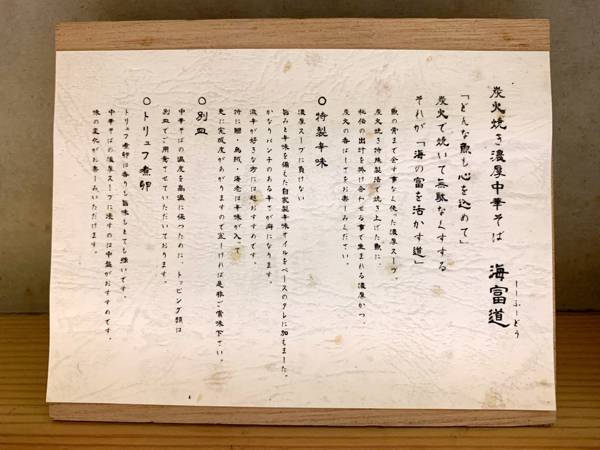 炭火焼き濃厚中華そば 海富道
しーふーどう
「どんな魚も心を込めて」
炭火で焼いて無駄なくすする
それが「海の富を活かす道」
魚の骨まで余す事なく使った濃厚スープ。
炭火焼き特殊製法で焼き上げた魚に
秘伝の出汁を掛け合わせる事で生まれる濃厚かつ、
炭火の香ばしさをお楽しみください。
○ 特製辛味
濃厚スープに負けない
旨みと辛味を備えた自家製辛味オイルをベースのタレに加えました。
かなりパンチのある辛さが癖になります。
濃辛が好きな方には超おすすめです。
特に鯛・烏賊・海老は辛味が入って
更に完成度があがりますので宜しければ是非ご賞味下さい。
○ 別皿
中華そばの温度を高温に保つために、トッピング類は
別皿でご用意させていただいております。
○ トリュフ煮卵
トリュフ煮卵は香りも旨味もとても強いです。
中華そばの濃厚スープに浸すのは中盤がおすすめです。
味の変化がお楽しみいただけます。